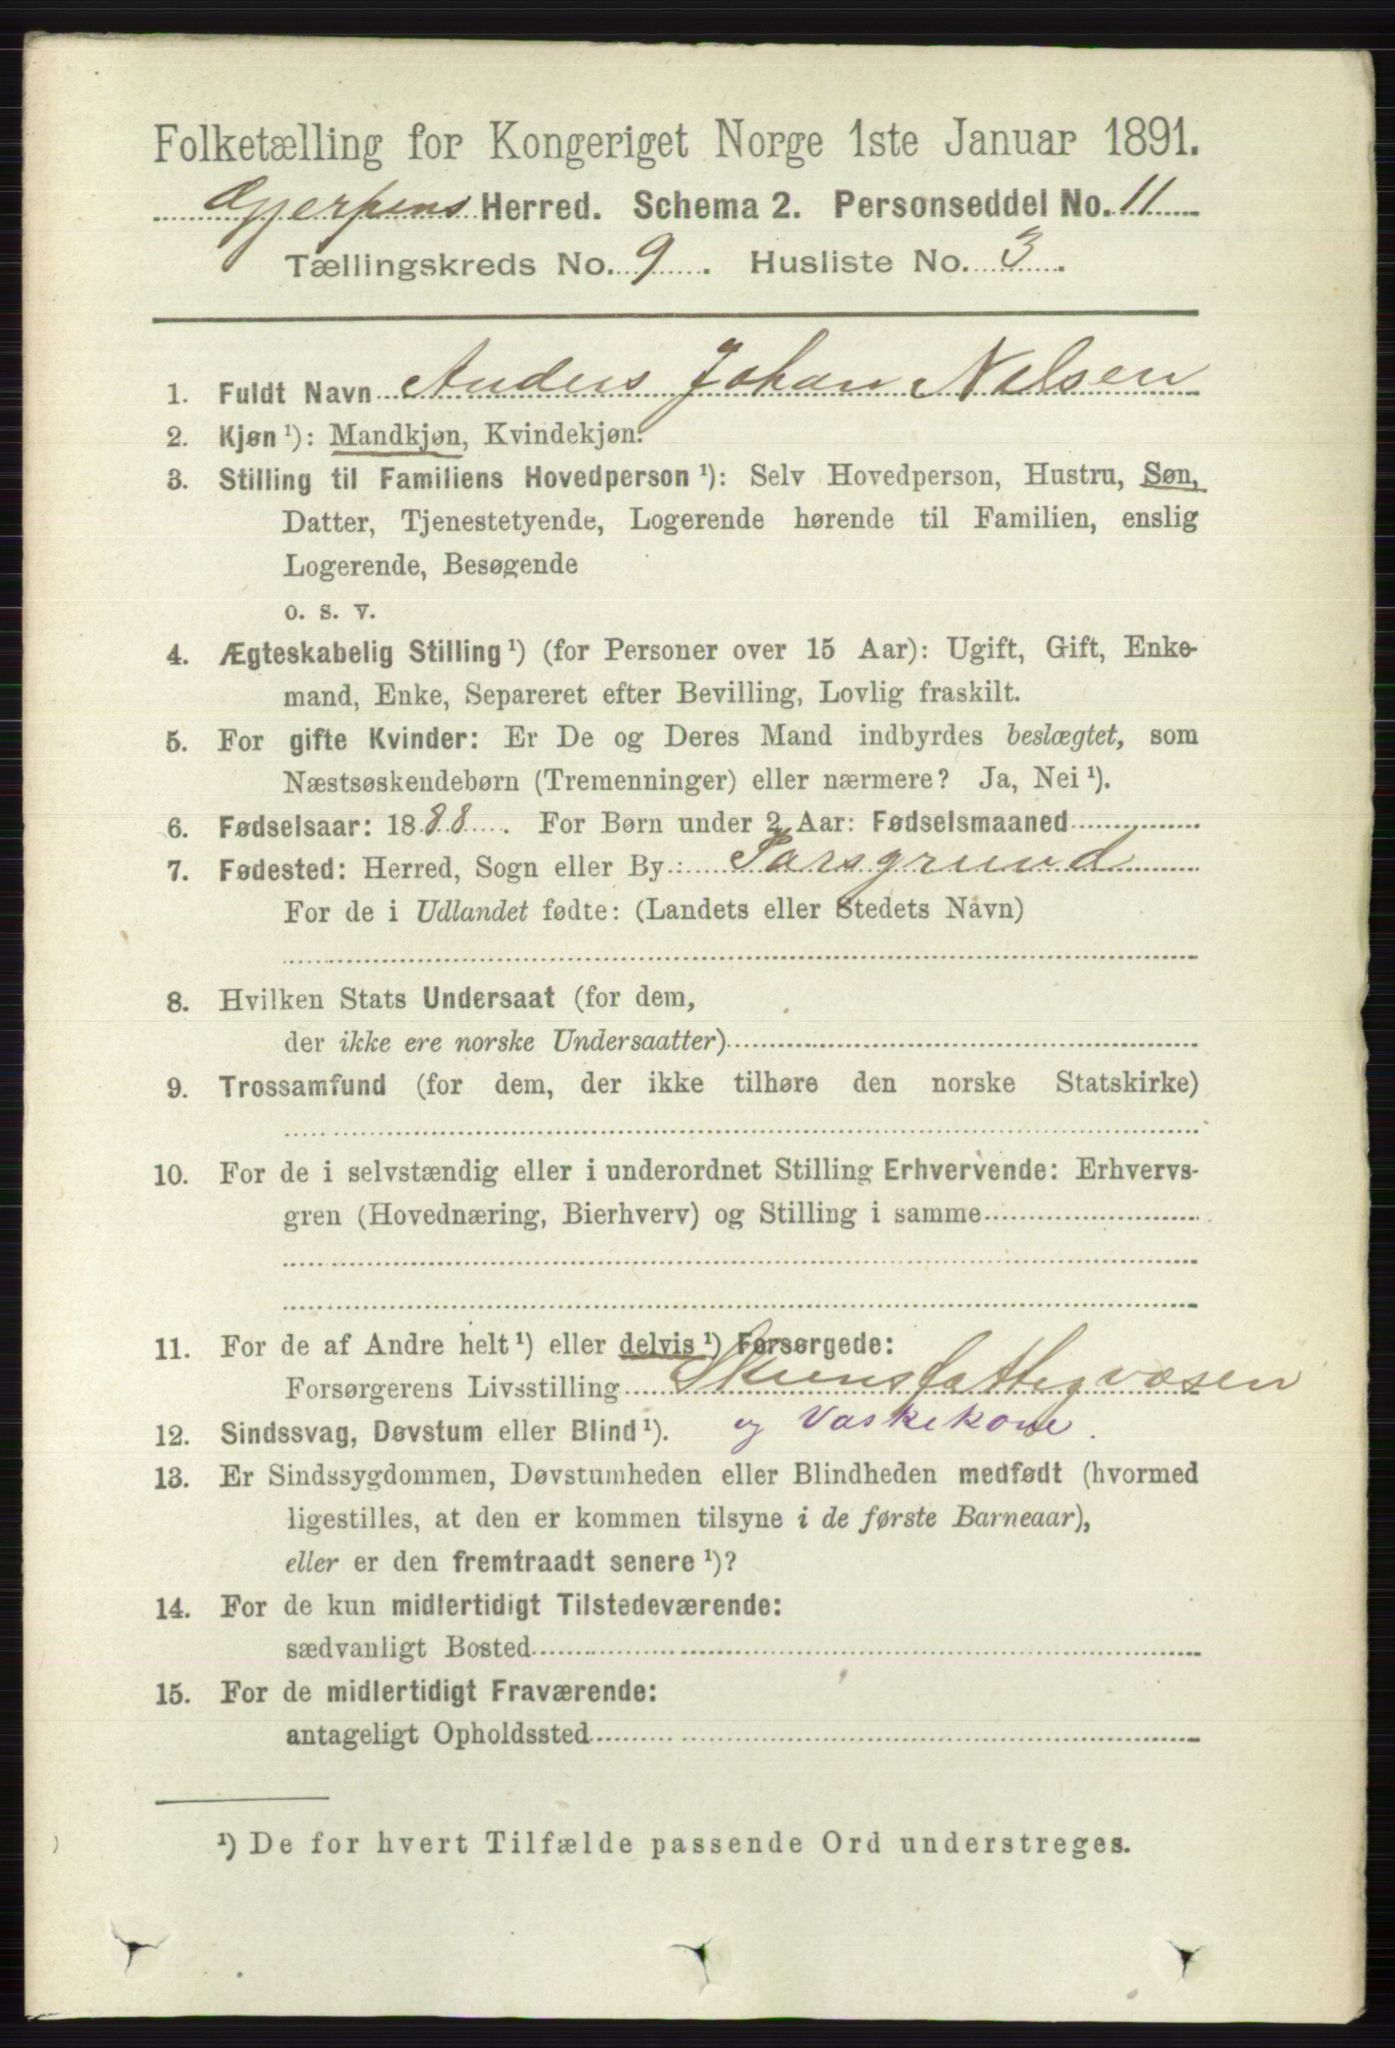 Folketælling for Kongeriget Norge 1ste Januar 1891.
Gjerpens Herred. Schema 2. Personseddel No. 11
Tællingskreds No. 9. Husliste No. 3.
1. Fuldt Navn Anders Johan Nilsen
2. Kjøn ¹): Mandkjøn, Kvindekjøn.
3. Stilling til Familiens Hovedperson ¹): Selv Hovedperson, Hustru, Søn,
Datter, Tjenestetyende, Logerende hørende til Familien, enslig
Logerende, Besøgende
o. s. v.
4. Ægteskabelig Stilling ¹) (for Personer over 15 Aar): Ugift, Gift, Enke-
mand, Enke, Separeret efter Bevilling, Lovlig fraskilt.
5. For gifte Kvinder: Er De og Deres Mand indbyrdes beslægtet, som
Næstsøskendebørn (Tremenninger) eller nærmere? Ja, Nei ¹).
6. Fødselsaar: 1888. For Børn under 2 Aar: Fødselsmaaned
7. Fødested: Herred, Sogn eller By: Porsgrund
For de i Udlandet fødte: (Landets eller Stedets Navn)
8. Hvilken Stats Undersaat (for dem,
der ikke ere norske Undersaatter)
9. Trossamfund (for dem, der ikke tilhøre den norske Statskirke)
10. For de i selvstændig eller i underordnet Stilling Erhvervende: Erhvervs-
gren (Hovednæring, Bierhverv) og Stilling i samme
11. For de af Andre helt ¹) eller delvis ¹) Forsørgede:
Forsørgerens Livsstilling Skiensfattigvæsen
og Vaskekone.
12. Sindssvag, Døvstum eller Blind ¹).
13. Er Sindssygdommen, Døvstumheden eller Blindheden medfødt (hvormed
ligestilles, at den er kommen tilsyne i de første Barneaar),
eller er den fremtraadt senere ¹)?
14. For de kun midlertidigt Tilstedeværende:
sædvanligt Bosted
15. For de midlertidigt Fraværende:
antageligt Opholdssted
¹) De for hvert Tilfælde passende Ord understreges.